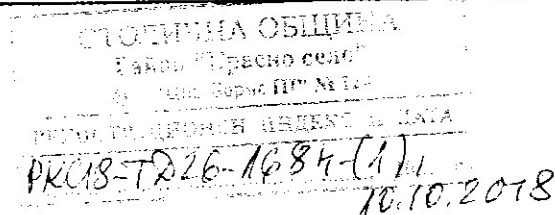 СТОЛИЧНА ОБЩИНА
Район "Красно село"
Борис III" №
РЕГИСТРАЦИОНЕН ИНДЕКС И ДАТА
РКС18-ТД26-1684-(1),
10.10.2018